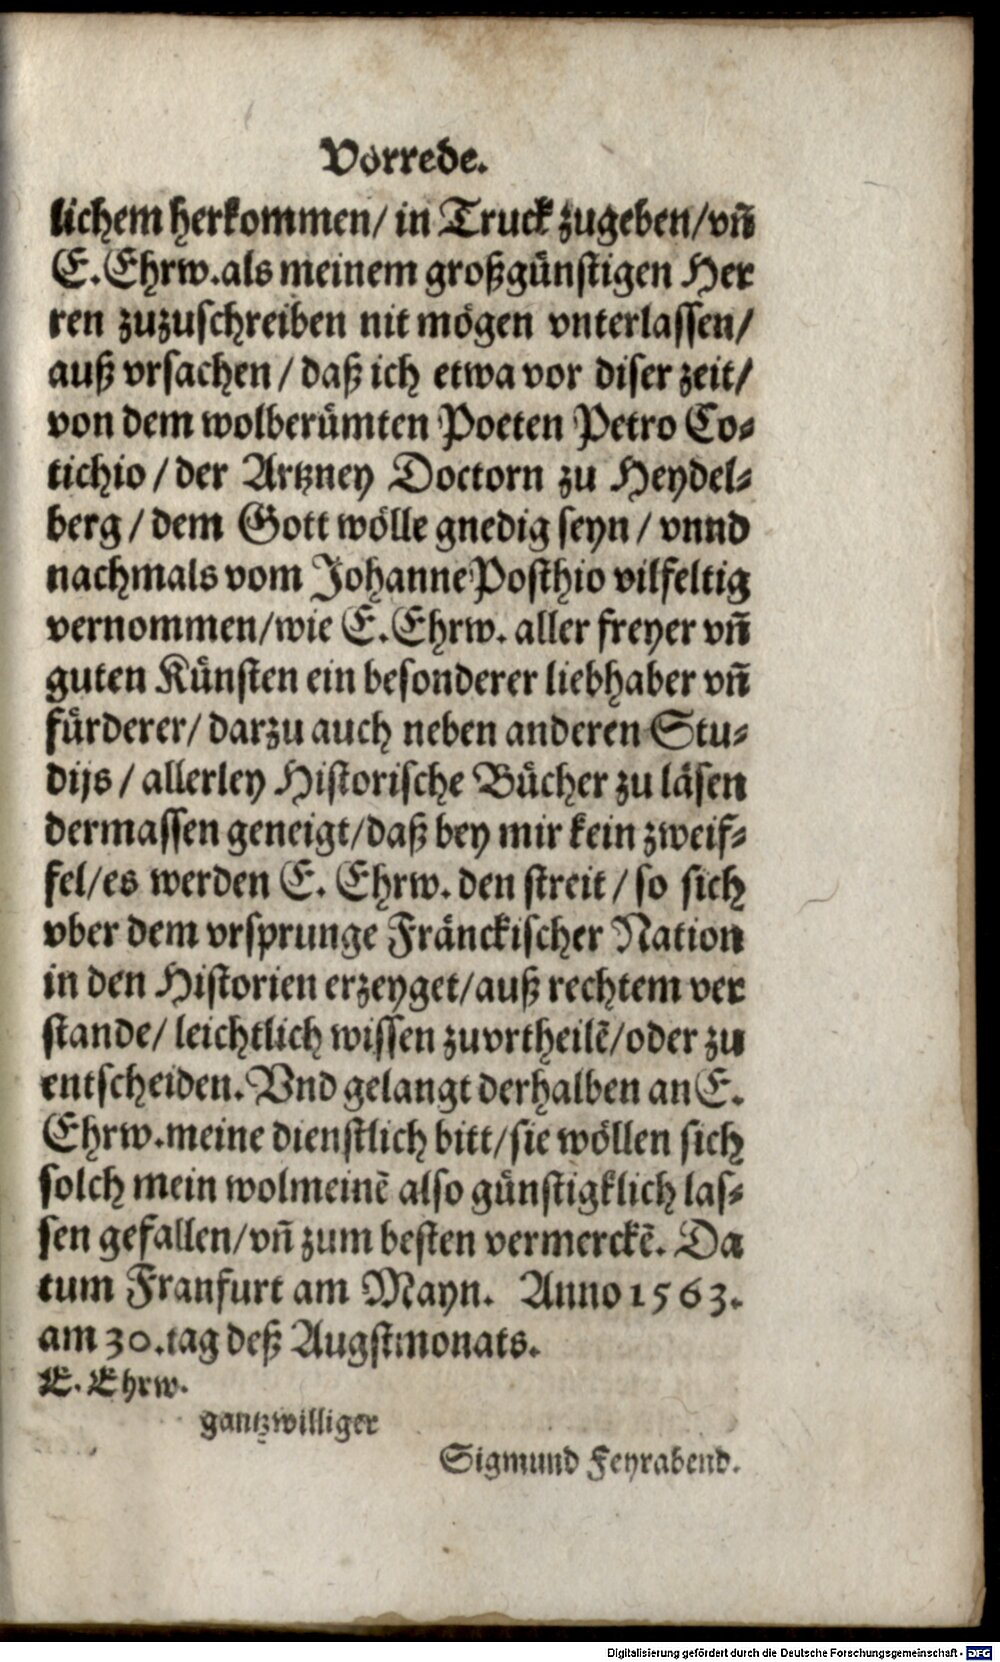 Vorrede.
lichem herkommen/ in Truck zugeben/vñ
E. Ehrw. als meinem großgünstigen Her
ren zuzuschreiben nit mögen vnterlassen/
auß vrsachen / daß ich etwa vor diser zeit/
von dem wolberümten Poeten Petro Co-
tichio / der Artzney Doctorn zu Heydel-
berg / dem Gott wölle gnedig seyn / vnnd
nachmals vom Johanne Posthio vilfeltig
vernommen/wie E. Ehrw. aller freyer vñ
guten Künsten ein besonderer liebhaber vñ
fürderer/ darzu auch neben anderen Stu-
dijs / allerley Historische Bücher zu läsen
dermassen geneigt/daß bey mir kein zweif-
fel/es werden E. Ehrw. den streit / so sich
vber dem vrsprunge Fränckischer Nation
in den Historien erzeyget/auß rechtem ver
stande/ leichtlich wissen zuvrtheilẽ/oder zu
entscheiden. Vnd gelangt derhalben an E.
Ehrw. meine dienstlich bitt/sie wöllen sich
solch mein wolmeinẽ also günstigklich las-
sen gefallen/vñ zum besten vermerckẽ. Da
tum Franfurt am Mayn. Anno 1563.
am 30. tag deß Augstmonats.
E. Ehrw.
gantzwilliger
Sigmund Feyrabend.
Digitalisierung gefördert durch die Deutsche Forschungsgemeinschaft - DFG